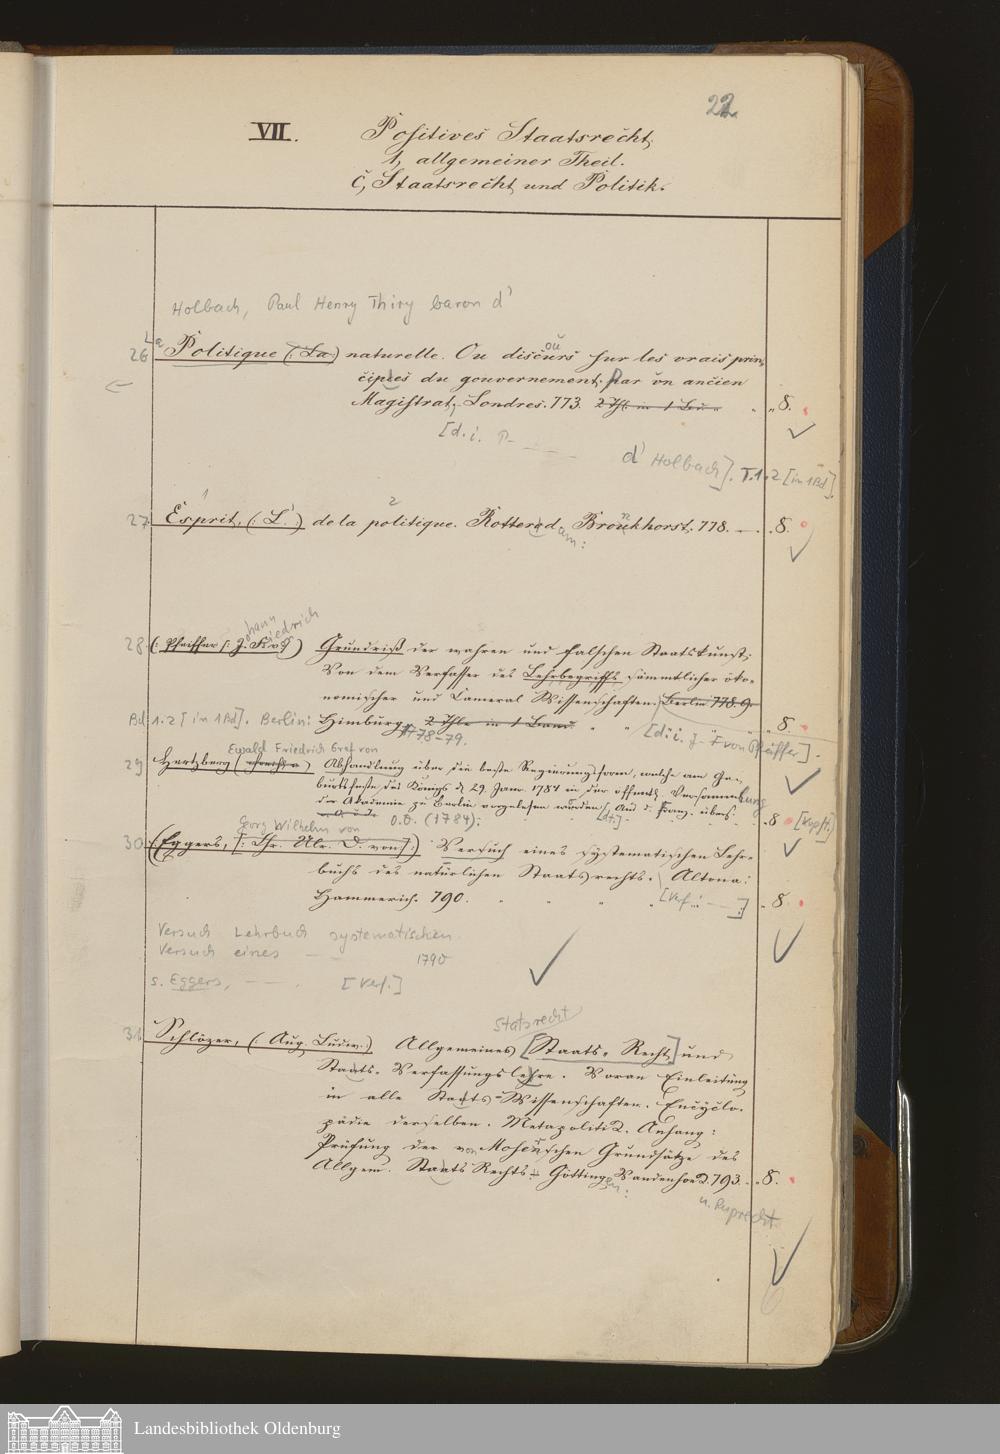 22
VII. Positives Staatsrecht,
1, allgemeiner Theil.
c, Staatsrecht und Politik.
Holbach, Paul Henry Thiry baron d'
26 La Politique (: La :) naturelle. Ou discours sur les vrais prin-
cipes du gouvernement. Par un ancien
Magistrat, Londres. 773. 2 Thl. in 1 Bd. " " 8.
[d. i. P. d' Holbach]. T. 1. 2 [in 1 Bd].
27 Esprit, (: L' :) de la politique. Rotterdam: Bronkhorst. 778. — " 8.
28. (: Pfeiffer [: J. F. v. :] Johann Friedrich Grundriß der wahren und falschen Staatskunst;
Von dem Verfasser des Lehrbegriffs sämmtlicher öko-
nomischer und Cameral Wissenschaften. Berlin 778. 9.
Bd 1. 2 [in 1 Bd]. Berlin: Himburg 2 Thle in 1 Band. " " " " 8.
1778-79. [d. i. J. F von Pfeiffer].
Ewald Friedrich Graf von
29 Hertzberg Abhandlung über die beste Regierungsform, welche am Ge-
burtsfeste des Königs d. 29. Jan. 1784 in der öffentl. Versammlung
der Akademie zu Berlin vorgelesen worden. Aus d. Franz. übers.
O.O. (1784). [dt.]. 8 [Kapf.]
Georg Wilhelm von
30. (Eggers, [: Chr. Ulr. D. von :] :) Versuch eines systematischen Lehr-
buchs des natürlichen Staatsrechts. Altona:
Hammerich. 790. " " " [Verf.: — ] " 8.
Versuch Lehrbuch systematischen
Versuch eines — — 1790
s. Eggers, — — . [Verf.]
Statsrecht
31. Schlözer, (: Aug. Ludw. :) Allgemeines [Staats- Recht] und
Staats- Verfassungslehre. Voran Einleitung
in alle Staats-Wissenschaften. Encyclo-
pädie derselben. Metapolitik. Anhang:
Prüfung der von Moserschen Grundsätze des
Allgem. Staats Rechts. Göttingen: Vandenhoek. 793. " 8.
u. Ruprecht
Landesbibliothek Oldenburg